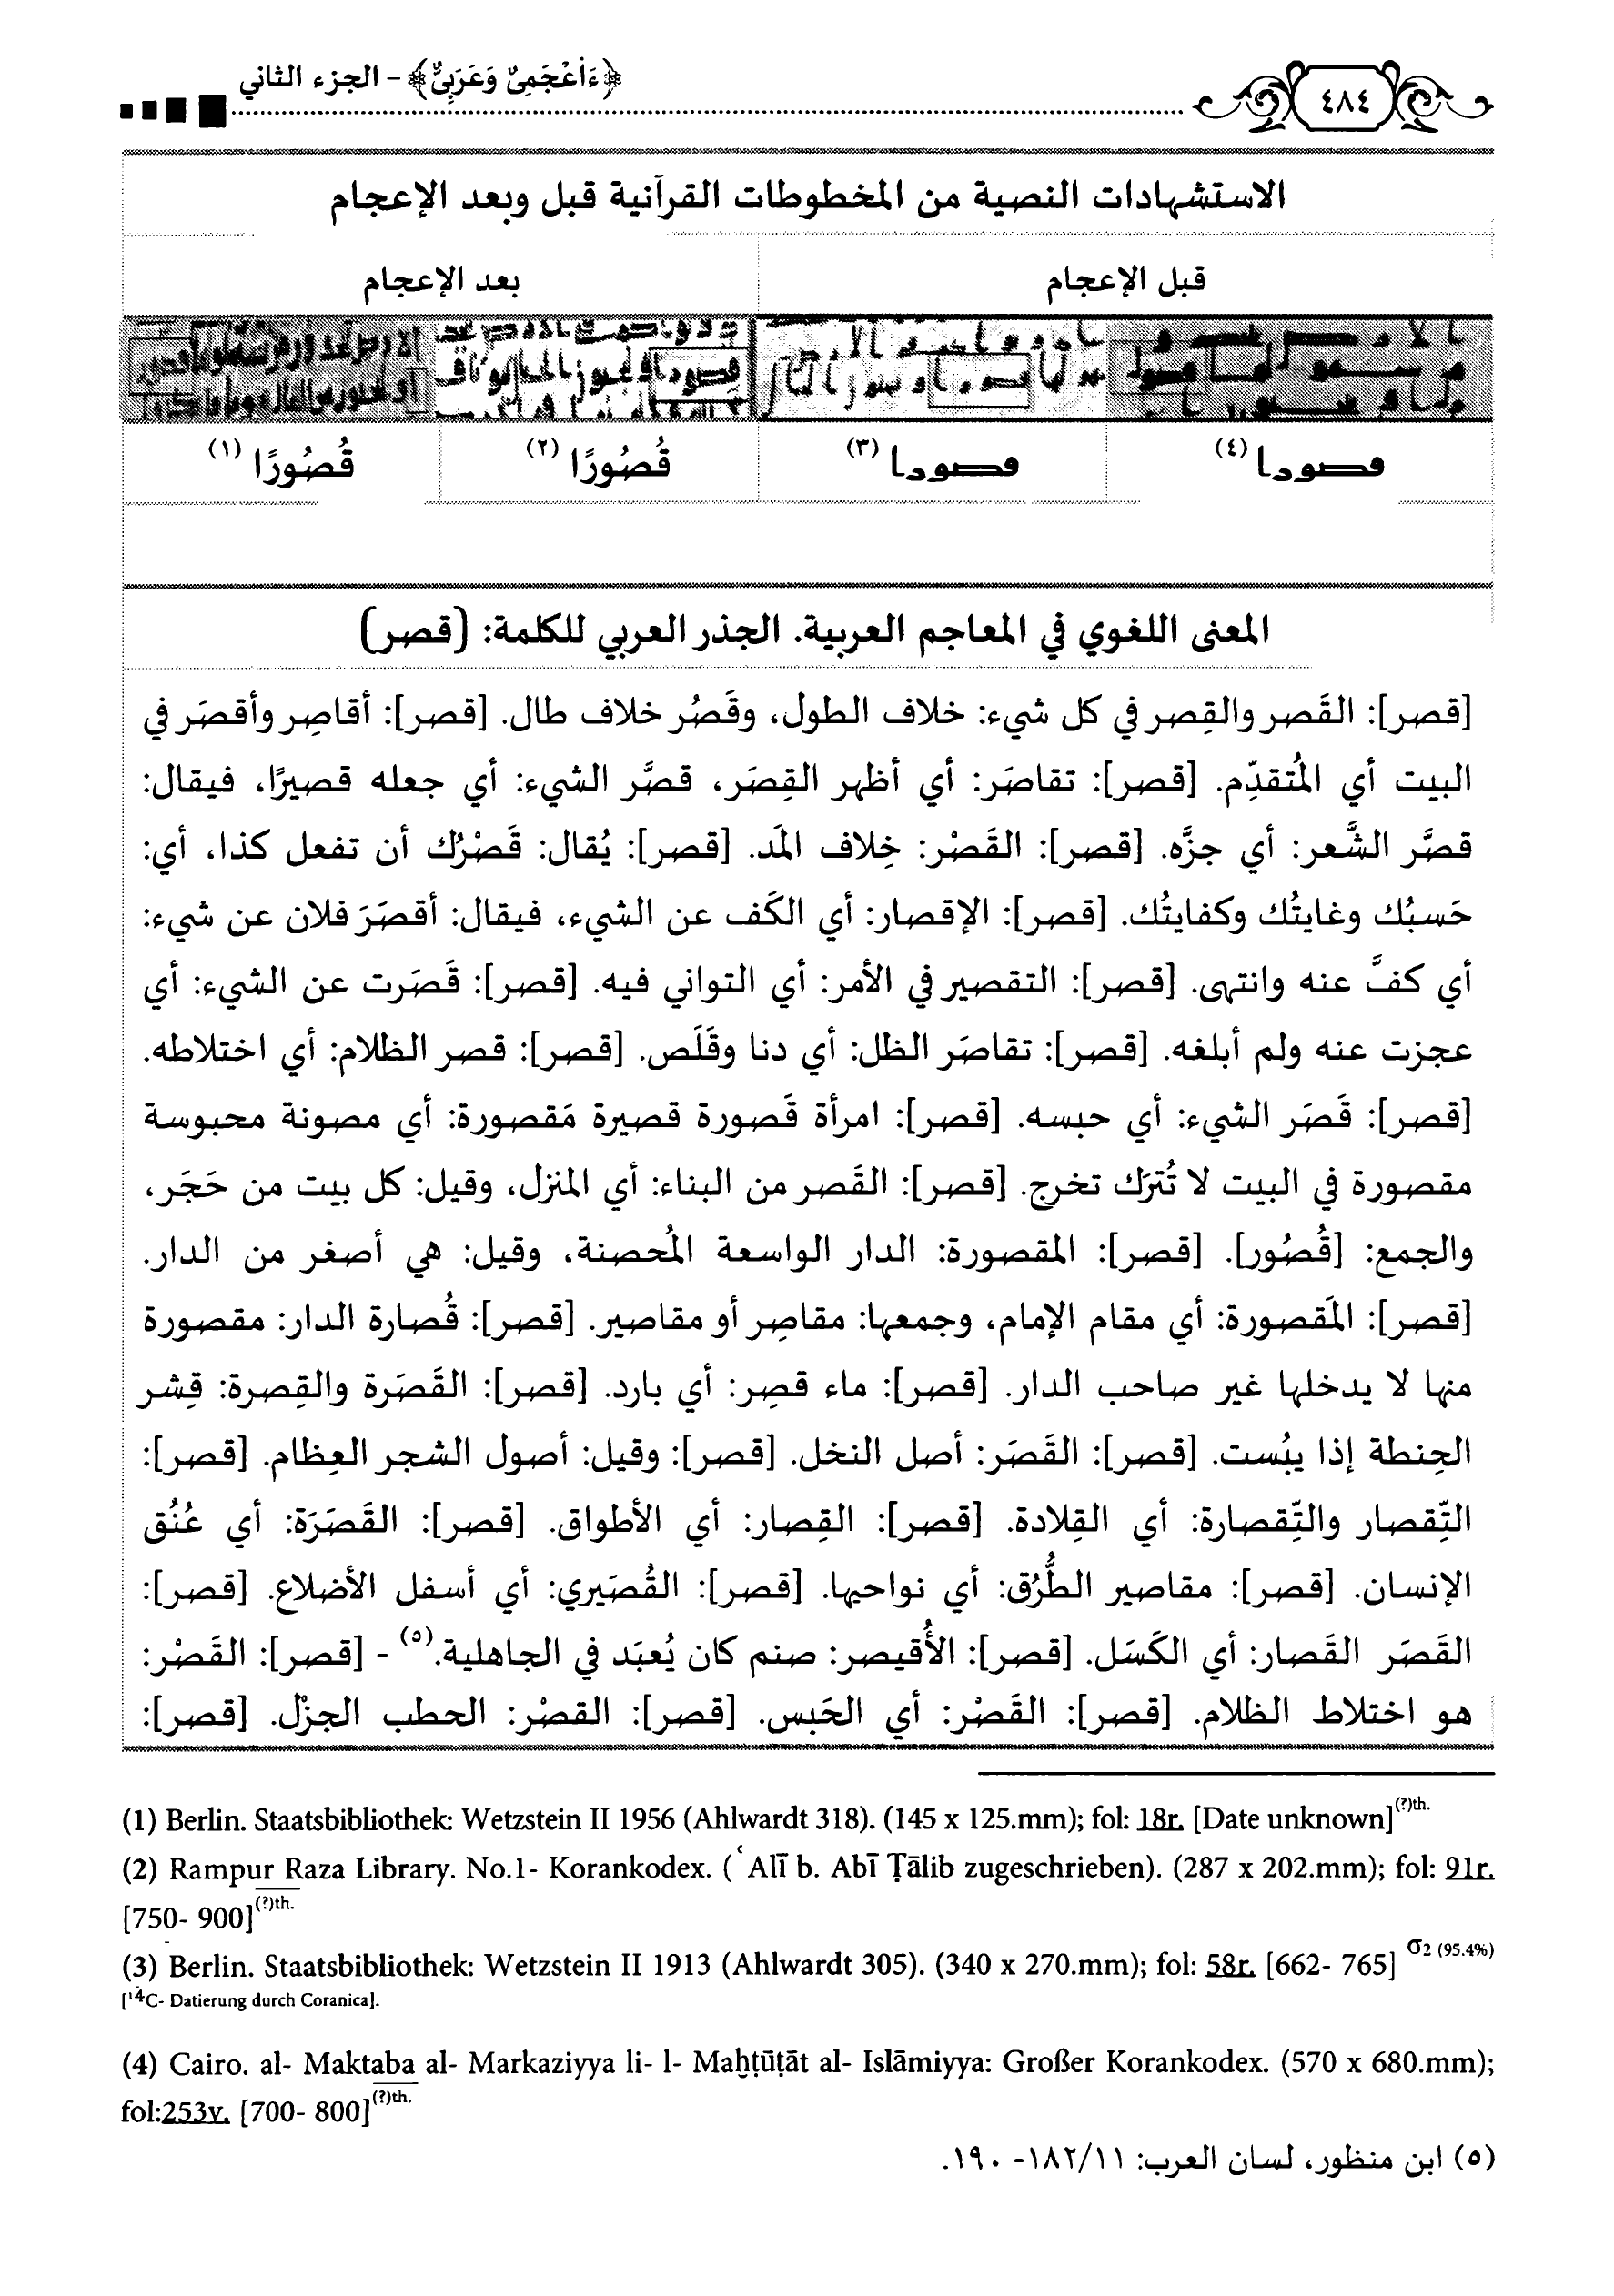 ٤٨٤
﴿ءَاْعْجَمِىٌ وَعَرَبِىٌّ﴾ - الجزء الثاني
الاستشهادات النصية من المخطوطات القرآنية قبل وبعد الإعجام
قبل الإعجام
بعد الإعجام
ڡصورا (٤)
ڡصورا (٣)
قُصُورًا (٢)
قُصُورًا (١)
المعنى اللغوي في المعاجم العربية. الجذر العربي للكلمة: (قصر)
[قصر]: القَصر والقِصر في كل شيء: خلاف الطول، وقَصُر خلاف طال. [قصر]: أقاصِر وأقصَر في
البيت أي المُتقدِّم. [قصر]: تقاصَر: أي أظهر القِصَر، قصَّر الشيء: أي جعله قصيرًا، فيقال:
قصَّر الشَّعر: أي جزَّه. [قصر]: القَصْر: خِلاف المَد. [قصر]: يُقال: قَصْرُك أن تفعل كذا، أي:
حَسبُك وغايتُك وكفايتُك. [قصر]: الإقصار: أي الكَف عن الشيء، فيقال: أقصَرَ فلان عن شيء:
أي كفَّ عنه وانتهى. [قصر]: التقصير في الأمر: أي التواني فيه. [قصر]: قَصَرت عن الشيء: أي
عجزت عنه ولم أبلغه. [قصر]: تقاصَر الظل: أي دنا وقَلَص. [قصر]: قصر الظلام: أي اختلاطه.
[قصر]: قَصَر الشيء: أي حبسه. [قصر]: امرأة قَصورة قصيرة مَقصورة: أي مصونة محبوسة
مقصورة في البيت لا تُترَك تخرج. [قصر]: القَصر من البناء: أي المنزل، وقيل: كل بيت من حَجَر،
والجمع: [قُصُور]. [قصر]: المقصورة: الدار الواسعة المُحصنة، وقيل: هي أصغر من الدار.
[قصر]: المَقصورة: أي مقام الإمام، وجمعها: مقاصِر أو مقاصير. [قصر]: قُصارة الدار: مقصورة
منها لا يدخلها غير صاحب الدار. [قصر]: ماء قصِر: أي بارد. [قصر]: القَصَرة والقِصرة: قِشر
الحِنطة إذا يبُست. [قصر]: القَصَر: أصل النخل. [قصر]: وقيل: أصول الشجر العِظام. [قصر]:
التِّقصار والتِّقصارة: أي القِلادة. [قصر]: القِصار: أي الأطواق. [قصر]: القَصَرَة: أي عُنُق
الإنسان. [قصر]: مقاصير الطُّرُق: أي نواحيها. [قصر]: القُصَيري: أي أسفل الأضلاع. [قصر]:
القَصَر القَصار: أي الكَسَل. [قصر]: الأُقيصر: صنم كان يُعبَد في الجاهلية.(٥) - [قصر]: القَصْر:
هو اختلاط الظلام. [قصر]: القَصْر: أي الحَبس. [قصر]: القصْر: الحطب الجزْل. [قصر]:
(1) Berlin. Staatsbibliothek: Wetzstein II 1956 (Ahlwardt 318). (145 x 125.mm); fol: 18r. [Date unknown](?)th.
(2) Rampur Raza Library. No.1- Korankodex. (ʿAlī b. Abī Ṭālib zugeschrieben). (287 x 202.mm); fol: 91r.
[750- 900](?)th.
(3) Berlin. Staatsbibliothek: Wetzstein II 1913 (Ahlwardt 305). (340 x 270.mm); fol: 58r. [662- 765] σ2 (95.4%)
[¹⁴C- Datierung durch Coranica].
(4) Cairo. al- Maktaba al- Markaziyya li- l- Maḫṭūṭāt al- Islāmiyya: Großer Korankodex. (570 x 680.mm);
fol:253v. [700- 800](?)th.
(٥) ابن منظور، لسان العرب: ١٨٢/١١- ١٩٠.